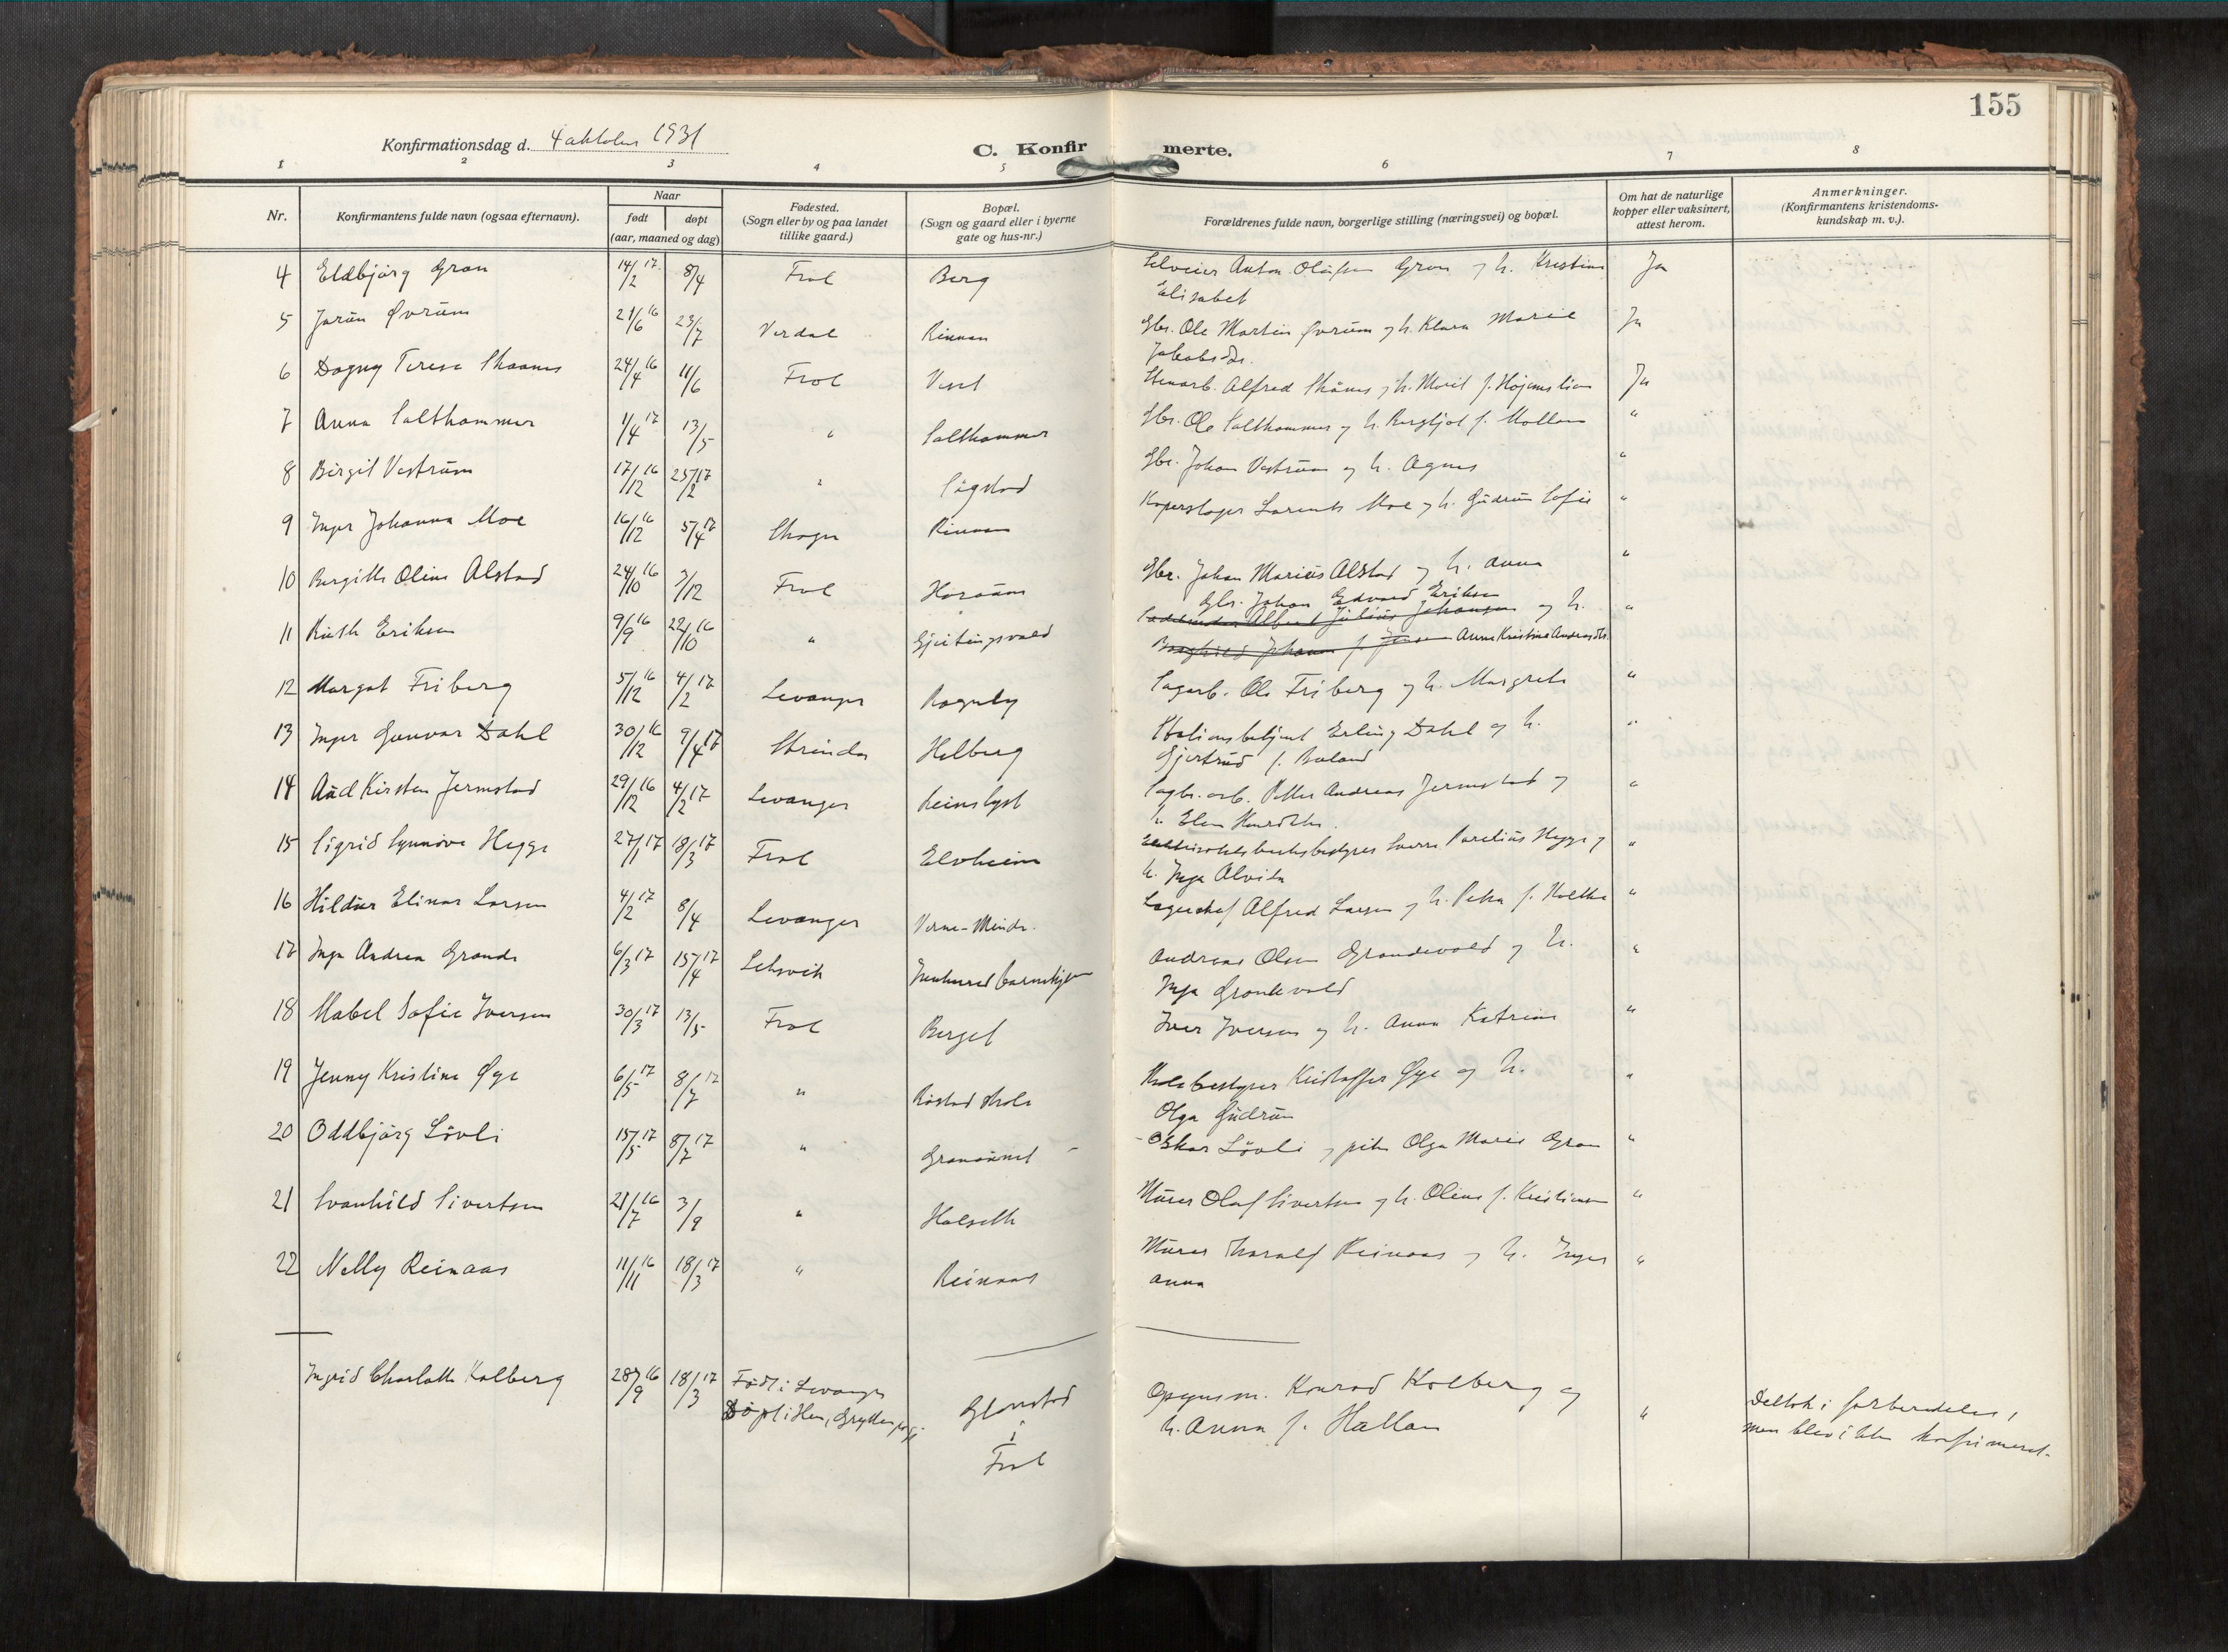 155
Konfirmationsdag d. 4 oktober 1931
C. Konfirmerte.
1 2 3 4 5 6 7 8
Nr.
Konfirmantens fulde navn (ogsaa efternavn).
Naar
født
døpt
(aar, maaned og dag)
Fødested.
(Sogn eller by og paa landet
tillike gaard.)
Bopæl.
(Sogn og gaard eller i byerne
gate og hus-nr.)
Forældrenes fulde navn, borgerlige stilling (næringsvei) og bopæl.
Om hat de naturlige
kopper eller vaksinert,
attest herom.
Anmerkninger.
(Konfirmantens kristendoms-
kundskap m. v.).
4 Eldbjørg Gran 14/2 17 8/4 Frol Berg Selveier Anton Olufsen Gran og h. Kristine Ja
Elisabet
5 Jorun Øvrum 21/6 16 23/7 Verdal Rinnan Gbr. Ole Martin Øvrum og h. Klara Marie Ja
Jakobsdtr.
6 Dagny Terese Skaanes 24/4 16 11/6 Frol Vest Stenarb. Alfred Skånes og h. Marit f. Højemslien Ja
7 Anna Salthammer 1/4 17 13/5 " Salthammer Gbr. Ole Salthammer og h. Bergljot f. Mollan "
8 Birgit Vestrum 17/12 16 25/2 17 " Sågstad Gbr. Johan Vestrum og h. Agnes "
9 Inger Johanna Moe 16/12 16 5/4 17 Skogn Rinnan Koperslager Laurents Moe og h. Gudrun Sofie "
10 Bergitte Oline Alstad 24/10 16 3/12 Frol Gbr. Johan Marius Alstad og h. Anna "
Gbr. Johan Edvard Eriksen
11 Ruth Eriksen 9/9 16 22/10 16 " Gjeitingsvold Albert Julius Johansen og h. "
Johanna f. Jensen Anna Kristine Andreasdtr.
12 Margot Friberg 5/12 16 4/2 17 Levanger Rognby Sagarb. Ole Friberg og h. Margrete "
13 Inger Gunvor Dahl 30/12 16 9/4 17 Strinda Helberg Stationsbetjent Erling Dahl og h. "
Gjertrud f.
14 Aud Kirsten Jermstad 29/12 16 4/2 17 Levanger Reinslyst Sagbr. arb. Petter Andreas Jermstad og "
" Elen
15 Sigrid Synnøve Hegge 27/1 17 18/3 17 Frol Elvheim Elektrisitetsverksbestyrer Sverre Parelius Hegge og "
h. Inga Alvilda
16 Hildur Elinor Larsen 4/2 17 8/4 Levanger Verne-Minde. Lagerchef Alfred Larsen og h. Petra f. Holthe "
17 Inga Andrea Grande 6/3 17 15/4 17 Leksvik Innherred barnehjem Andreas Olsen Grandevold og h. "
Inga Grandevold
18 Mabel Sofie Iversen 30/3 17 13/5 Frol Berget Iver Iversen og h. Anna Katrine "
19 Jenny Kristine Øye 6/5 17 8/7 17 " Røstad skole Skolebestyrer Kristoffer Øye og h. "
Olga Gudrun
20 Oddbjørg Løvli 15/5 17 8/7 17 " Oskar Løvli og pike Olga Marie Gran "
21 Svanhild Sivertsen 21/7 16 3/9 " Halseth Murer Olaf Sivertsen og h. Oline f. Kristiansen "
22 Nelly Reinaas 11/11 16 18/3 17 " Reinaas Murer Harald Reinaas og h. Inger "
Anna
Ingrid Charlotte Kolberg 28/9 16 18/3 17 Født i Levanger Glonstad Opsynsm. Konrad Kolberg og Deltok i forberedelse,
Døpt i Hen, Grytten i h. Anna f. Hallan " men blev ikke konfirmert.
Frol